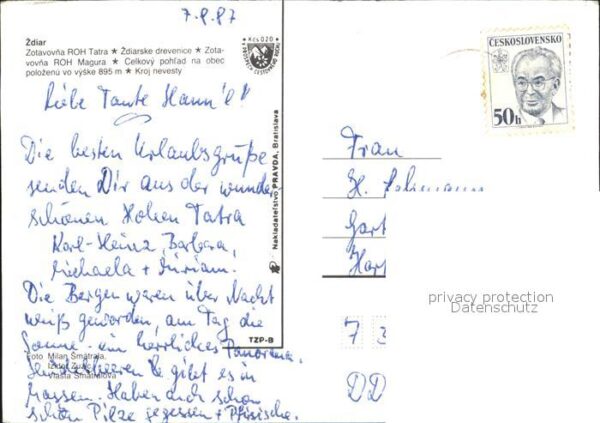 7.9.87
Ždiar
Zotavovňa ROH Tatra ★ Ždiarske drevenice ★ Zota-
vovňa ROH Magura ★ Celkový pohľad na obec
položenú vo výške 895 m ★ Kroj nevesty
Kčs 0,20
ČESKOSLOVENSKO
50h
Liebe Tante Hann'l!
Die besten Urlaubsgrüße
senden Dir aus der wunder-
schönen Hohen Tatra
Karl-Heinz, Barbara,
Michaela + Miriam.
Die Bergen waren über Nacht
weiß geworden, am Tag die
Sonne - ein herrliches Panorama.
gibt es in
Massen. Haben auch schon
schön Pilze gegessen + Pfirsische.
Foto Milan Šmátrala,
Vlasta Šmátralová
Nakladateľstvo PRAVDA, Bratislava
TZP-B
Frau
H.
Gart
7 3
DD
privacy protection
Datenschutz